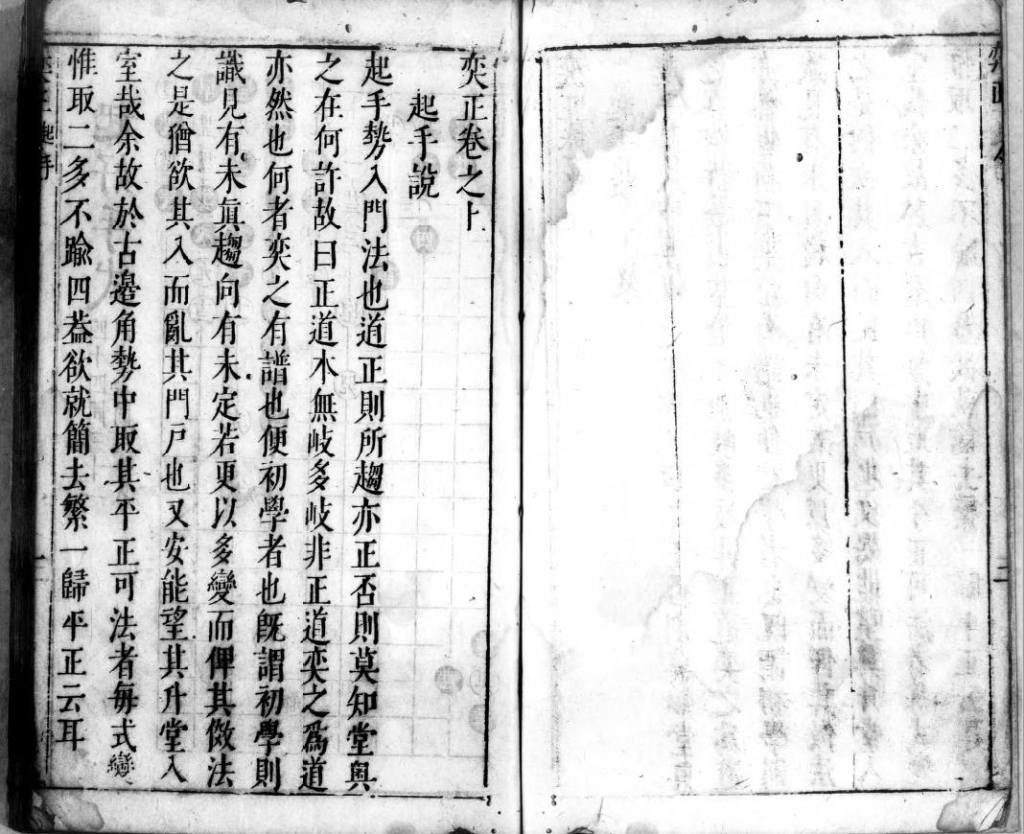 奕正卷之上
起手說
起手勢入門法也道正則所趨亦正否則莫知堂奧
之在何許故曰正道本無岐多岐非正道奕之爲道
亦然也何者奕之有譜也便初學者也旣謂初學則
識見有未眞趨向有未定若更以多變而俾其倣法
之是猶欲其入而亂其門戶也又安能望其升堂入
室哉余故於古邊角勢中取其平正可法者每式變
惟取二多不踰四葢欲就簡去繁一歸平正云耳